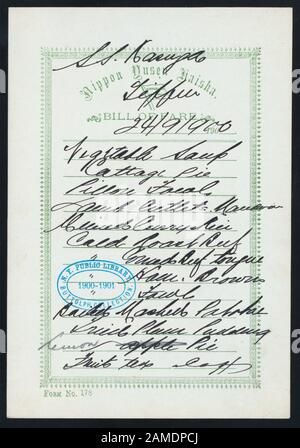 S.S.
Nippon Yusen Kaisha.
Tiffin
BILL OF FARE
24/9/1900
Vegetable Soup
Cottage Pie
Pillow Fowl
Lamb Cutlet
Curry Rice
Cold Roast Beef
" Corned Beef Tongue
" Ham Brawn
" Fowl
Mashed Potatoe
Plum Pudding
Lemon Pie
Fruit Tea Coffee
N.Y. PUBLIC LIBRARY
1900-1901
BUTTOLPH COLLECTION.
FORM NO. 178
alamy
Image ID: 2AMDPCJ
www.alamy.com